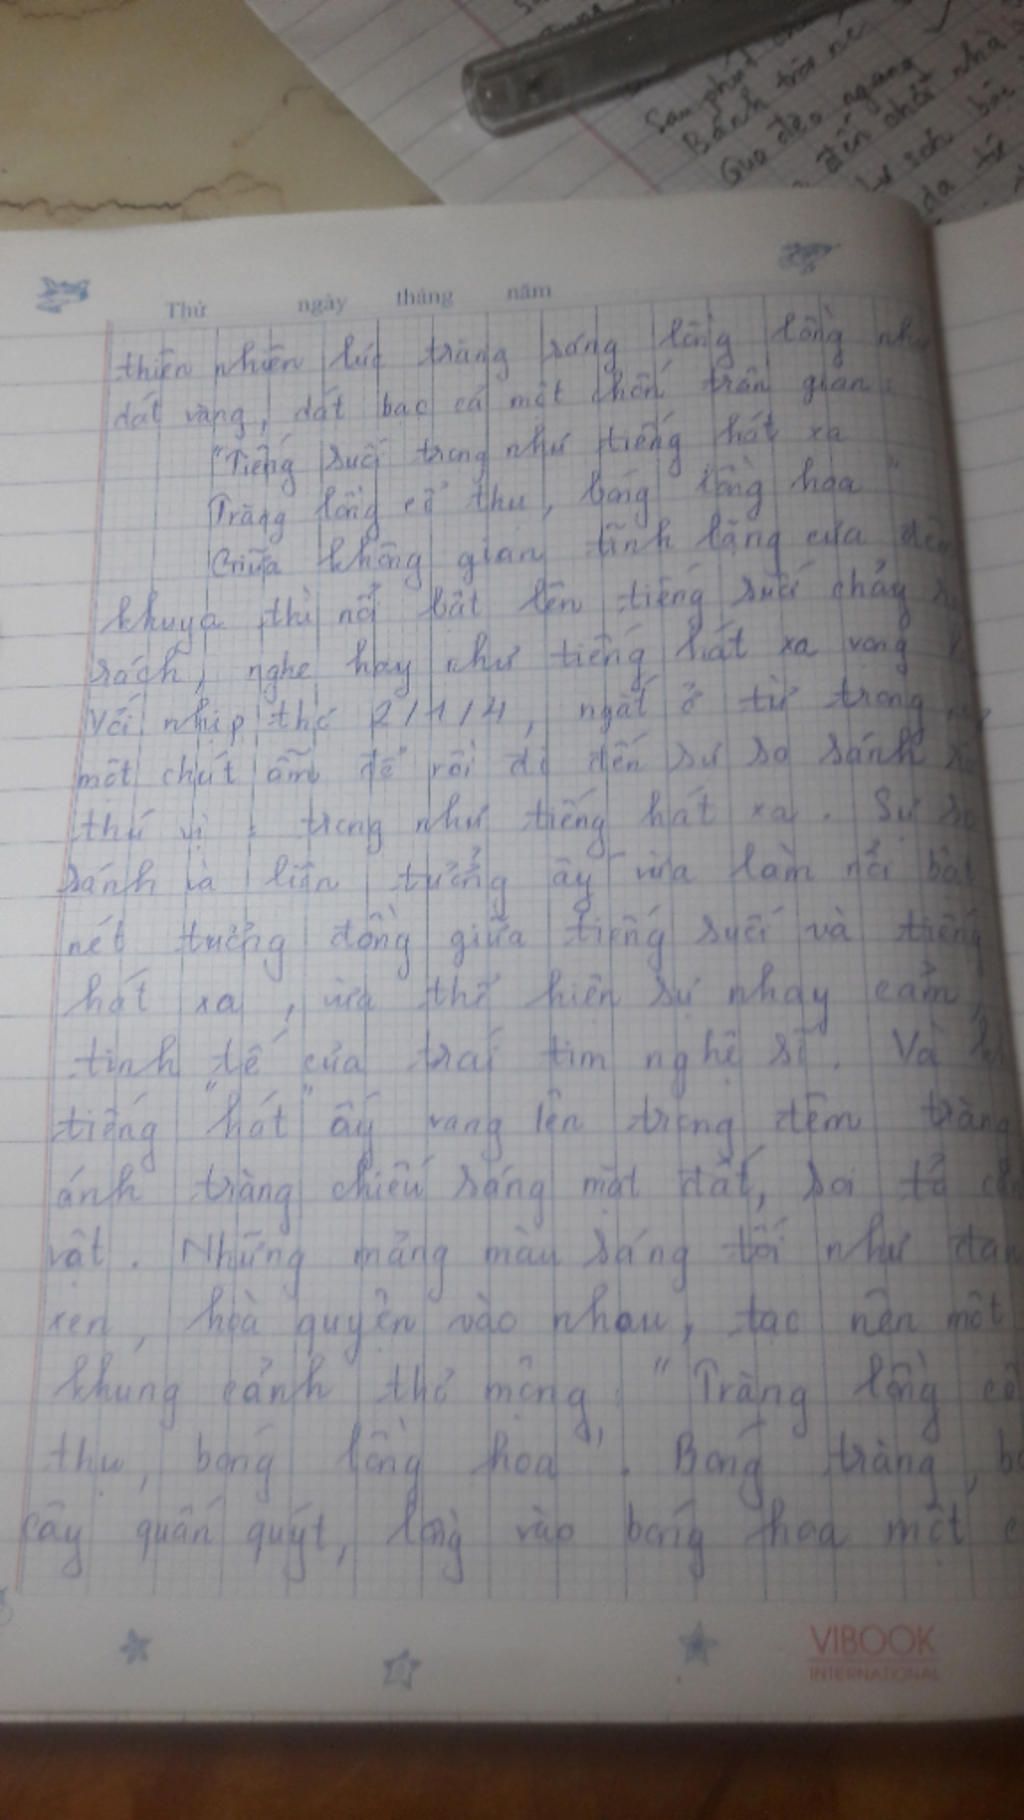 Sau phút
Bánh trôi nc
Qua đèo ngang
đến chơi nhà
Thứ ngày tháng năm
thiên nhiên lúc trăng sáng lồng lộng như
dát vàng, dát bạc cả một chốn trần gian:
"Tiếng suối trong như tiếng hát xa
Trăng lồng cổ thụ, bóng lồng hoa"
Giữa không gian tĩnh lặng của đêm
khuya thì nổi bật lên tiếng suối chảy
rách, nghe hay như tiếng hát xa vang
Với nhịp thơ 2/1/4, ngắt ở từ trong,
một chút âm để rồi đi đến sự so sánh
thú vị: trong như tiếng hát xa. Sự so
sánh và liên tưởng ấy vừa làm nổi bật
nét tương đồng giữa tiếng suối và tiếng
hát xa, vừa thể hiện sự nhạy cảm,
tinh tế của trái tim nghệ sĩ. Và
tiếng "hát" ấy vang lên trong đêm trăng
ánh trăng chiếu sáng mặt đất, soi tỏ
vật. Những mảng màu sáng tối như đan
xen, hoà quyện vào nhau, tạc nên một
khung cảnh thơ mộng, "Trăng lồng cổ
thụ, bóng lồng hoa". Bóng trăng,
cây quấn quýt, lồng vào bóng hoa một
VIBOOK
INTERNATIONAL